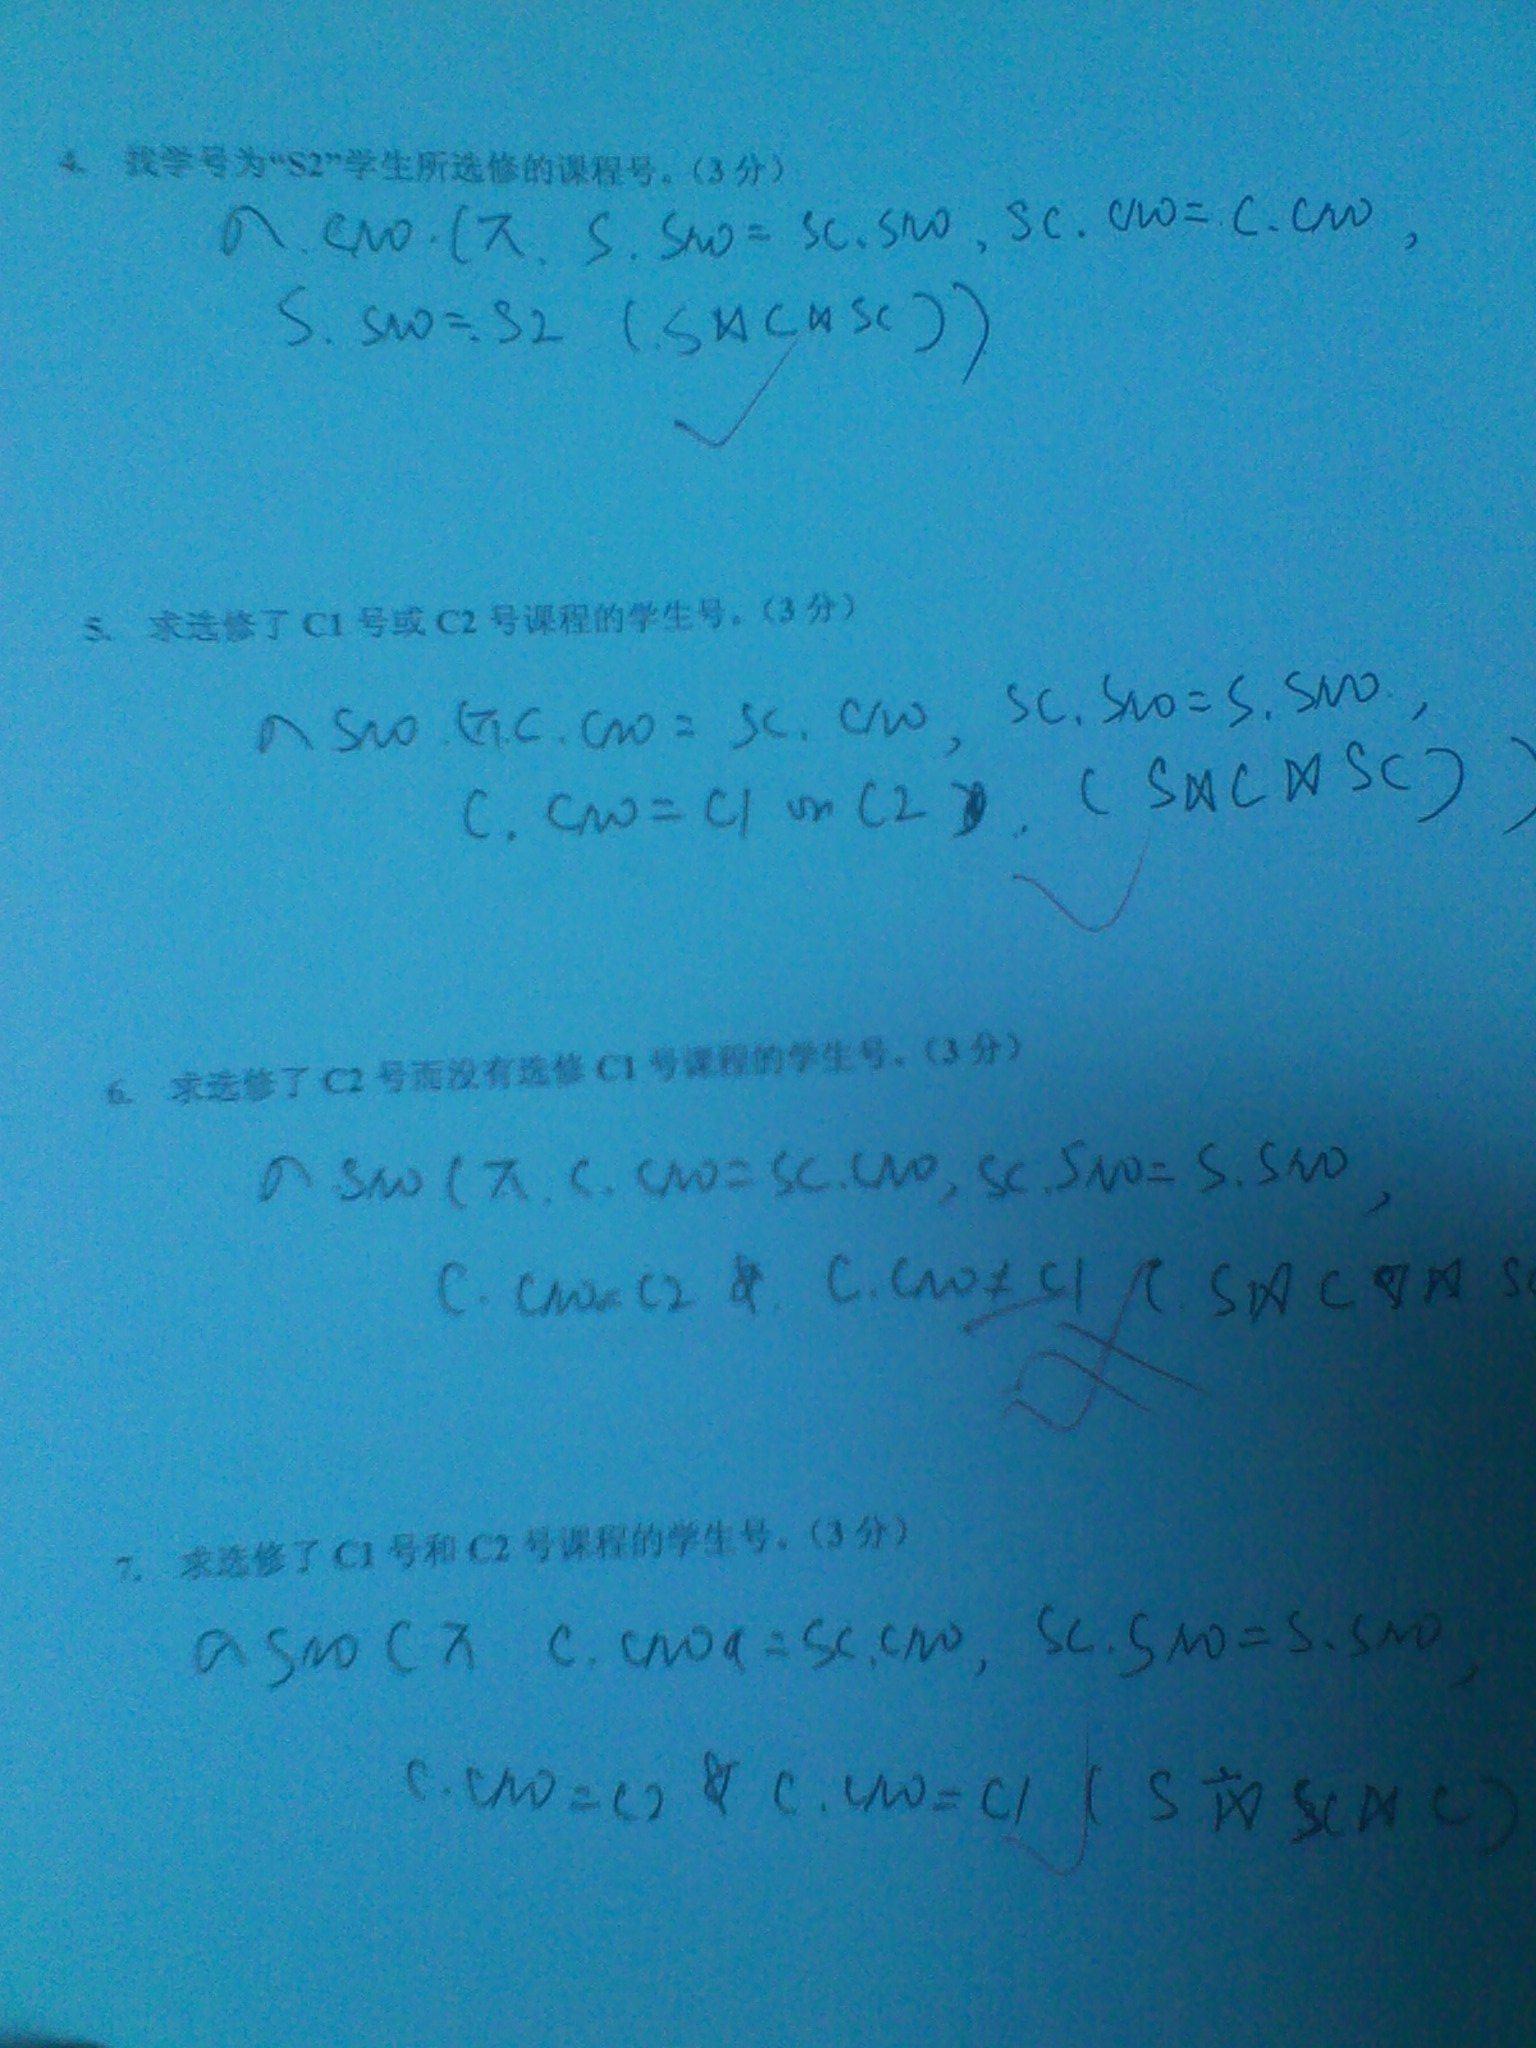 4. 找学号为“S2”学生所选修的课程号。(3分)
σ. CNO. (π. S. SNO = SC. SNO, SC. CNO = C. CNO,
S. SNO = S2 (S⋈C⋈SC))
5. 求选修了 C1 号或 C2 号课程的学生号。(3分)
σ SNO (π. C. CNO = SC. CNO, SC. SNO = S. SNO,
C. CNO = C1 or C2 (S⋈C⋈SC))
6. 求选修了 C2 号而没有选修 C1 号课程的学生号。(3分)
σ SNO (π. C. CNO = SC. CNO, SC. SNO = S. SNO,
C. CNO = C2 & C. CNO ≠ C1 (S⋈C⋈SC
7. 求选修了 C1 号和 C2 号课程的学生号。(3分)
σ SNO (π C. CNO = SC. CNO, SC. SNO = S. SNO,
C. CNO = C2 & C. CNO = C1 (S⋈SC⋈C)